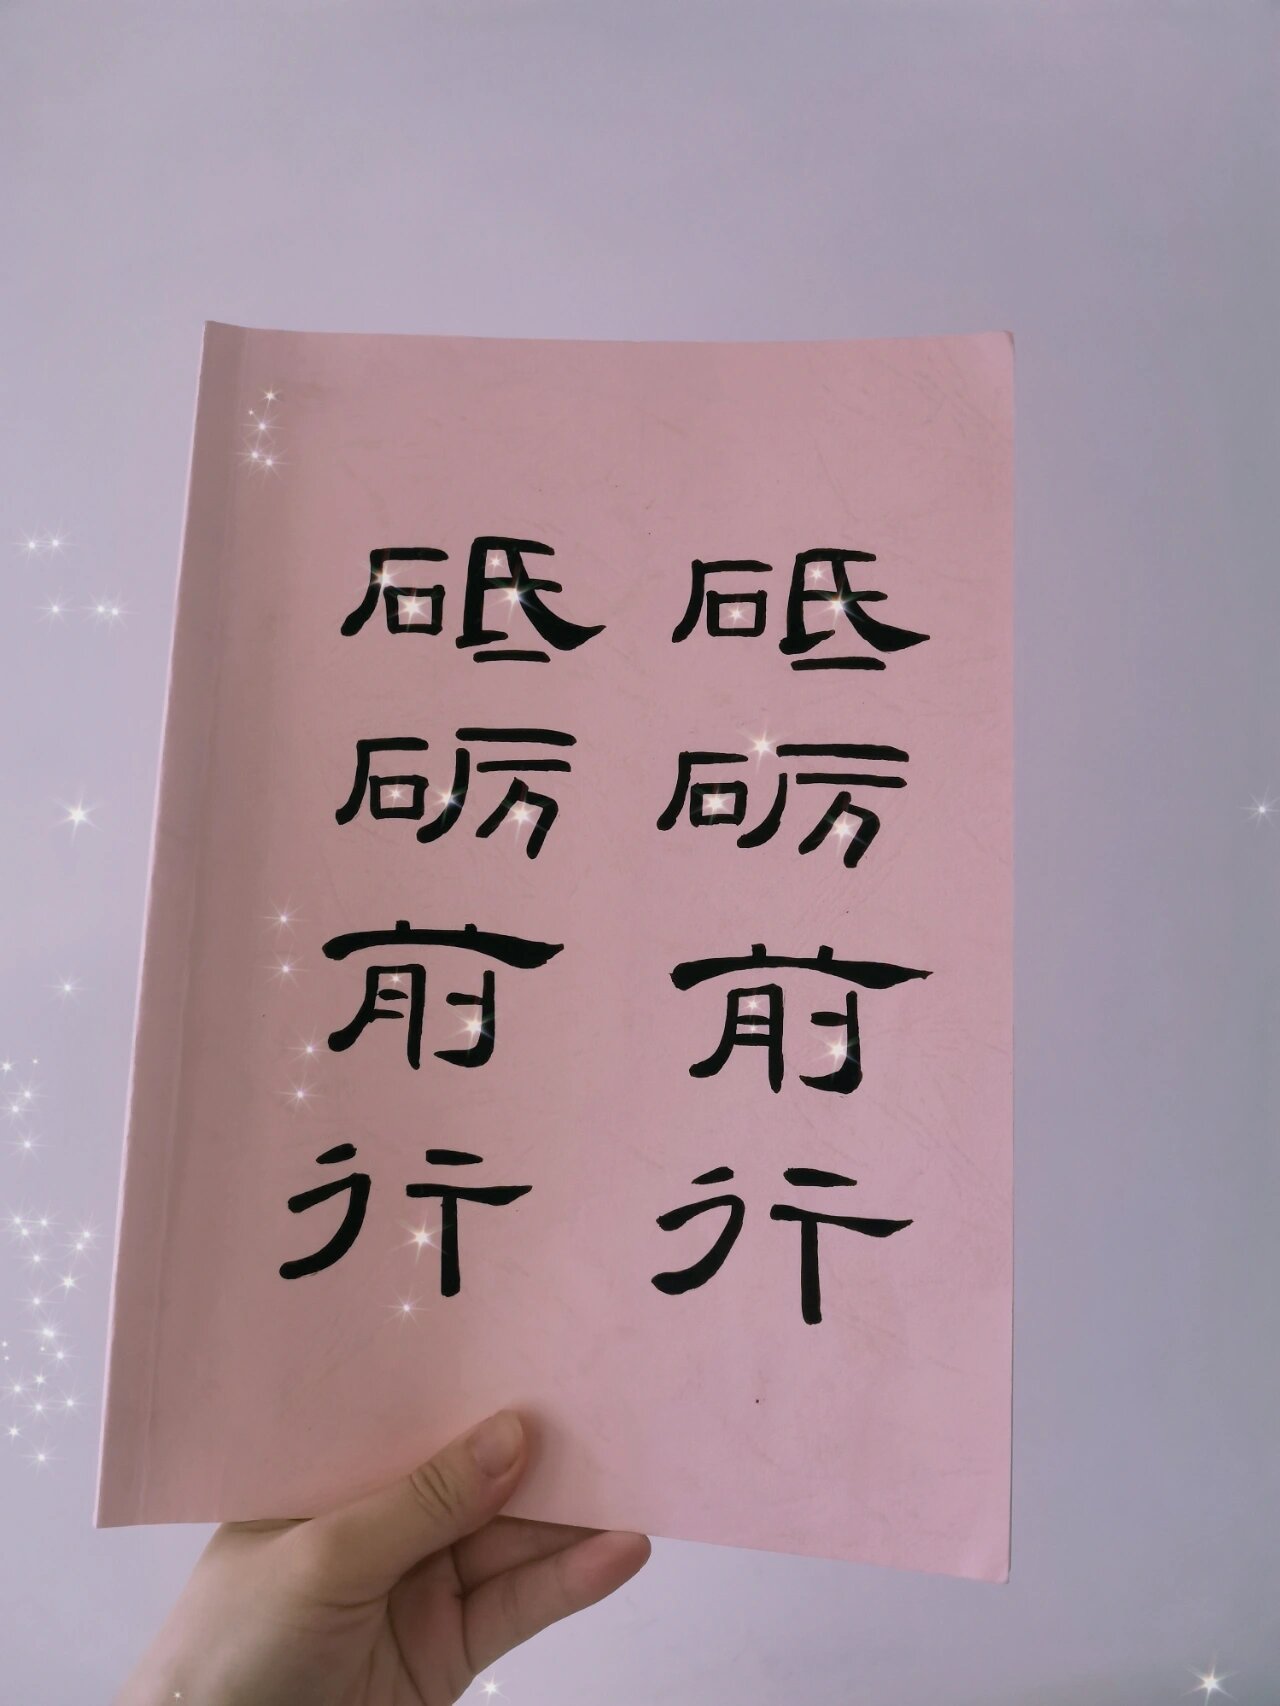 砥砺前行
砥砺前行